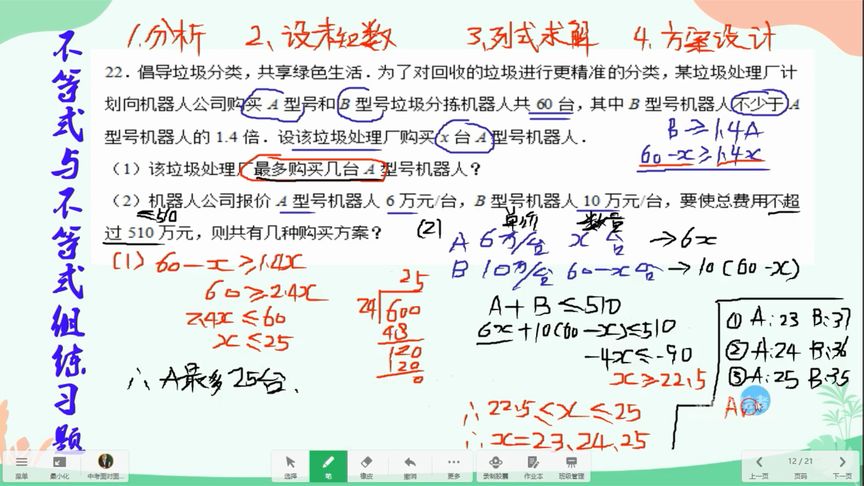 不等式与不等式组练习题
1.分析 2、设未知数 3、列式求解 4.方案设计
22．倡导垃圾分类，共享绿色生活．为了对回收的垃圾进行更精准的分类，某垃圾处理厂计
划向机器人公司购买 A 型号和 B 型号垃圾分拣机器人共 60 台，其中 B 型号机器人不少于 A
型号机器人的 1.4 倍．设该垃圾处理厂购买 x 台 A 型号机器人．
B≥1.4A
60-x≥1.4x
（1）该垃圾处理厂最多购买几台 A 型号机器人？
（2）机器人公司报价 A 型号机器人 6 万元/台，B 型号机器人 10 万元/台，要使总费用不超
≤510
过 510 万元，则共有几种购买方案？
(1) 60-x≥1.4x
60≥2.4x
2.4x≤60
x≤25
∴A最多25台.
25
24 600
48
120
120
0
(2) 单价 数量
A 6万/台 x 台 →6x
B 10万/台 60-x台 →10(60-x)
A+B≤510
6x+10(60-x)≤510
-4x≤-90
x≥22.5
∴22.5≤x≤25
∴x=23、24、25
① A:23 B:37
② A:24 B:36
③ A:25 B:35
菜单 最小化 中考面对面... 选择 笔 橡皮 撤消 更多 录制胶囊 作业本 班级管理 上一页 12/21 页码 下一页